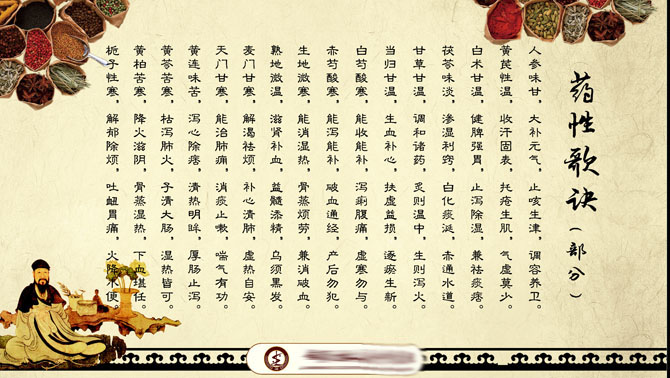 药性歌诀(部分)
人参味甘,大补元气,止咳生津,调容养卫。
黄芪性温,收汗固表,托疮生肌,气虚莫少。
白术甘温,健脾强胃,止泻除湿,兼祛痰痞。
茯苓味淡,渗湿利窍,白化痰涎,赤通水道。
甘草甘温,调和诸药,炙则温中,生则泻火。
当归甘温,生血补心,扶虚益损,逐瘀生新。
白芍酸寒,能收能补,泻痢腹痛,虚寒勿与。
赤芍酸寒,能泻能补,破血通经,产后勿犯。
生地微寒,能消湿热,骨蒸烦劳,兼消破血。
熟地微温,滋肾补血,益髓添精,乌须黑发。
麦门甘寒,解渴祛烦,补心清肺,虚热自安。
天门甘寒,能治肺痛,消痰止嗽,喘气有功。
黄连味苦,泻心除痞,清热明眸,厚肠止泻。
黄芩苦寒,枯泻肺火,子清大肠,湿热皆可。
黄柏苦寒,降火滋阴,骨蒸湿热,下血堪任。
栀子性寒,解郁除烦,吐衄胃痛,火降不便。